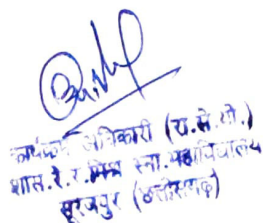 कार्यक्रम अधिकारी (रा.से.यो.)
शास.रे.र.मिश्र स्ना.महाविद्यालय
सूरजपुर (छत्तीसगढ़)